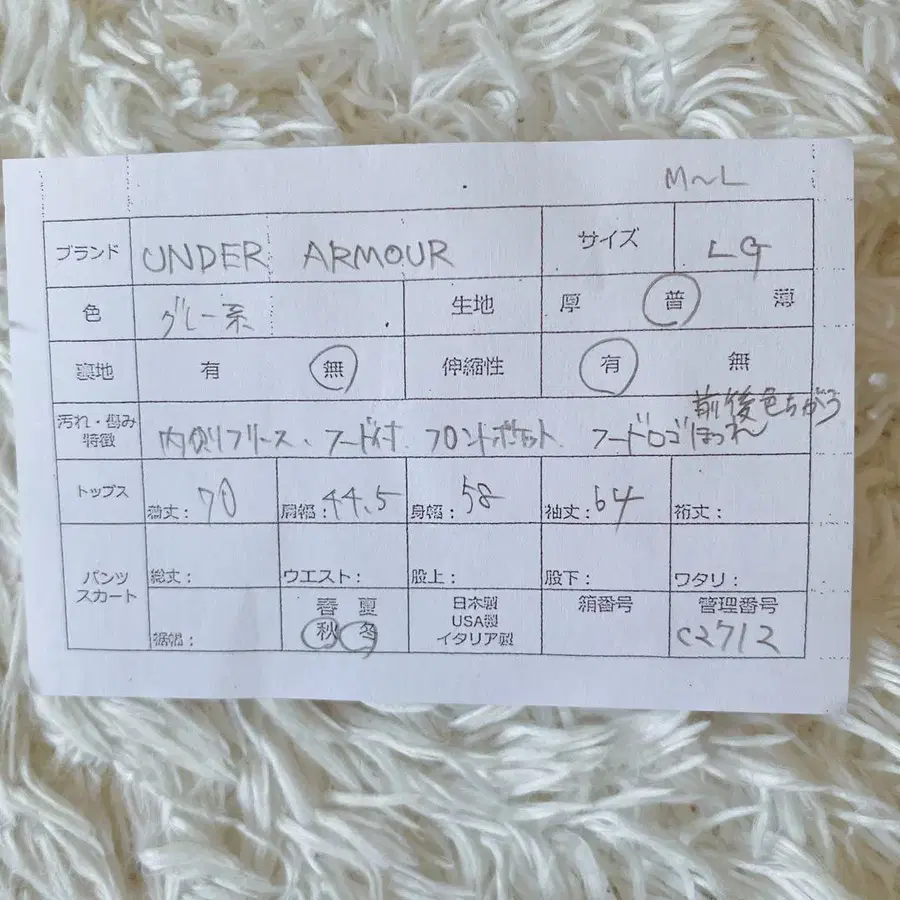 M〜L
ブランド UNDER ARMOUR サイズ LG
色 グレー系 生地 厚 普 薄
裏地 有 無 伸縮性 有 無
前後色ちがう
汚れ・傷み 特徴 内側フリース、フード付 フロントポケット フードロゴほつれ
トップス 着丈：70 肩幅：44.5 身幅：58 袖丈：64 裄丈：
パンツ スカート 総丈： ウエスト： 股上： 股下： ワタリ：
裾幅： 春 夏 秋 冬 日本製 USA製 イタリア製 箱番号 管理番号 C2712